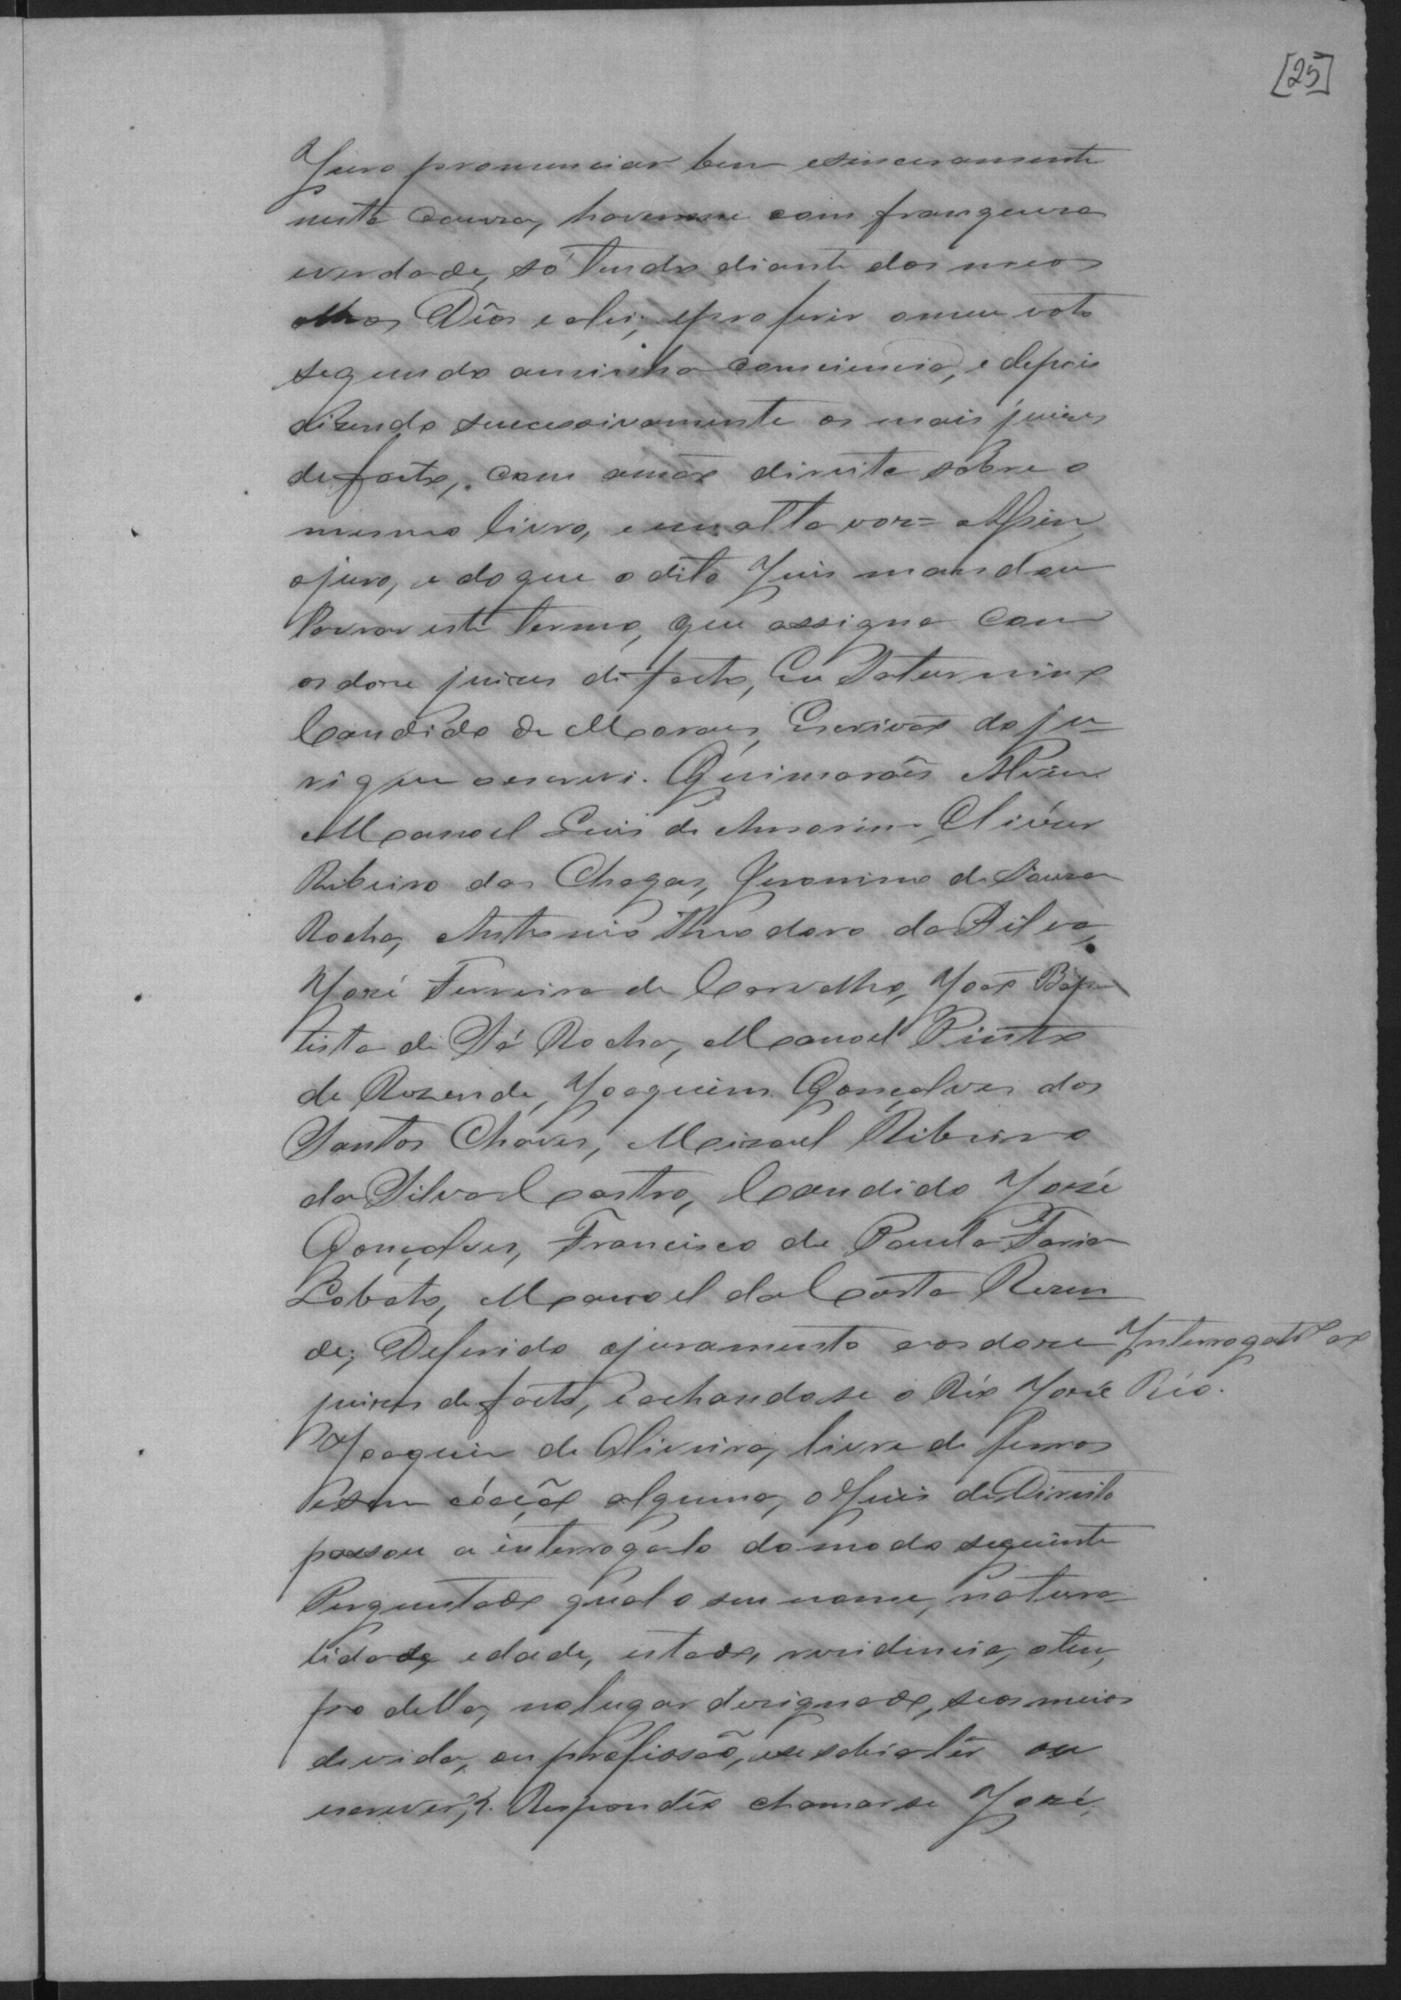 [25]
Juro pronunciar bem esinceramente
nesta causa, haverme com franqueza
everdade, só tendo diante dos meos
olhos Dẽos e alei; eproferir omeu voto
segundo aminha consciencia, e depois
disendo successivamente os mais juizes
defacto, com amão direita sobre o
mesmo livro, e em alta voz = Assim
ojuro, e do que o dito Juis mandou
lavrar este termo, que assigna com
os doze juizes de facto, Eu Saturnino
Candido de Moraes, Escrivão do ju-
ri que oescrevi. Guimarães
Manoel Luis de Amorim,
Ribeiro das Chagas, Jeronimo de Souza
Rocha, Antonio Theodoro da Silva,
José Ferreira de Carvalho, João Bap-
tista de Sá Rocha, Manoel Pinto
de Rezende, Joaquim Gonçalves dos
Santos Chaves, Misael Ribeiro
da Silva Castro, Candido José
Gonçalves, Francisco de Paula Faria
Lobato, Manoel da Costa Rezen-
de; Deferido ojuramento aos doze
Interrogatº ao
Réo.
juizes de facto, e achandose o Réo José
Joaquim de Oliveira, livre de ferros
e sem cóação alguma, o Juis de Direito
passou a interrogalo do modo seguinte
Perguntado qual o seu nome, natura-
lidade, edade, estado, residencia, otem-
po della, no lugar designado, seos meios
de vida, ou profissão, e se sabia lêr ou
escrever, ?. Respondêo chamar se José